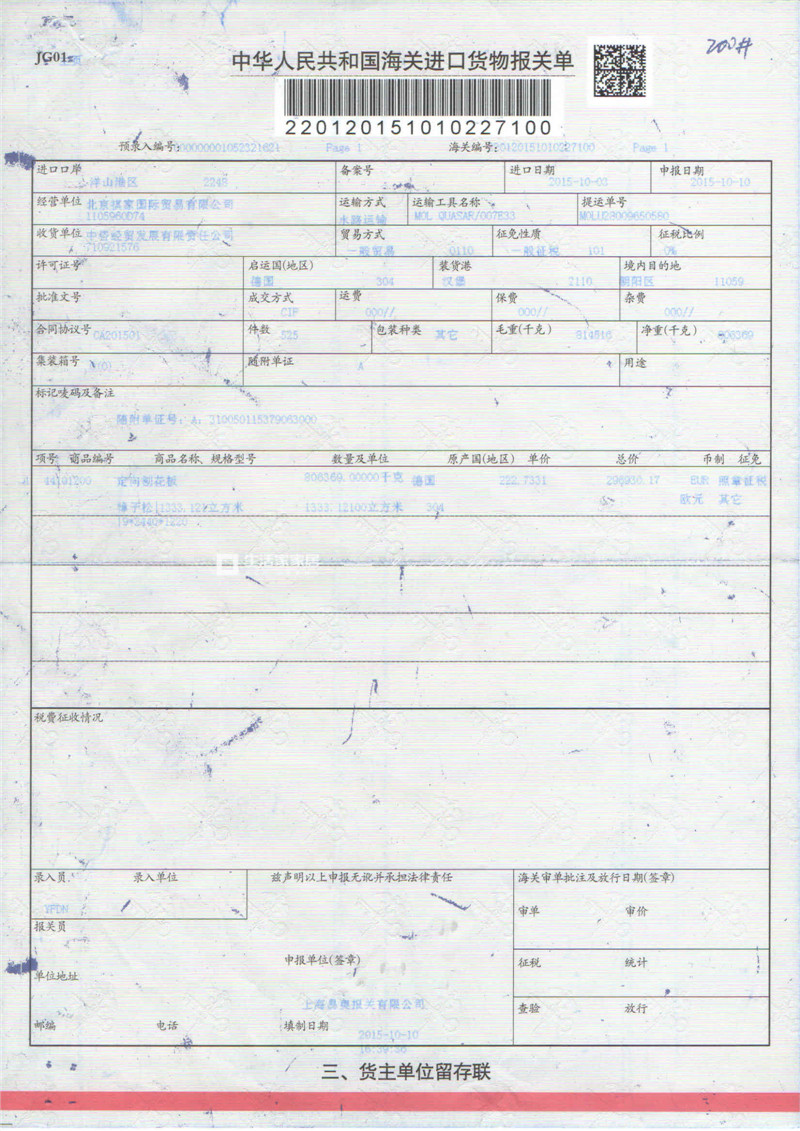 JG01
中华人民共和国海关进口货物报关单
220120151010227100
预录入编号: Page 1 海关编号: 220120151010227100 Page 1
进口口岸 备案号 进口日期 申报日期
洋山港区 2248 2015-10-03 2015-10-10
经营单位 运输方式 运输工具名称 提运单号
1105960D74 水路运输 MOL QUASAR/007E33
收货单位 贸易方式 征免性质 征税比例
710921576 一般贸易 0110 一般征税 101 0%
许可证号 启运国(地区) 装货港 境内目的地
德国 304 汉堡 2110 朝阳区 11059
批准文号 成交方式 运费 保费 杂费
CIF 000// 000// 000//
合同协议号 件数 包装种类 毛重(千克) 净重(千克)
CA201501 525 其它 814816 806369
集装箱号 随附单证 用途
(0) A
标记唛码及备注
随附单证号: A: 310050115379063000
项号 商品编号 商品名称、规格型号 数量及单位 原产国(地区) 单价 总价 币制 征免
44101200 定向刨花板 806369.00000千克 德国 222.7331 296930.17 EUR 照章征税
樟子松|1333.121立方米 1333.12100立方米 304 欧元 其它
19*2440*1220
生活家家居
税费征收情况
录入员 录入单位 兹声明以上申报无讹并承担法律责任 海关审单批注及放行日期(签章)
审单 审价
报关员
申报单位(签章) 征税 统计
单位地址
查验 放行
邮编 电话 填制日期
2015-10-10
三、货主单位留存联